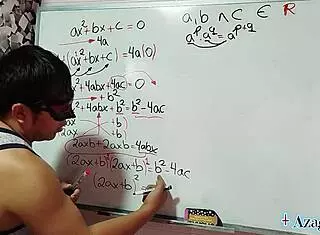 ax²+bx+c=0
4a
(ax²+bx+c)=4a(0)
+4abx+4ac=0
+b²
+4abx+b²=b²-4ac
2ax +b
2ax +b
2axb+2axb=4abx
(2ax+b)¹(2ax+b)¹=b²-4ac
(2ax+b)²=
a,b ∧ C ∈ R
aᵖ·a^q=a^p+q
+ Azag